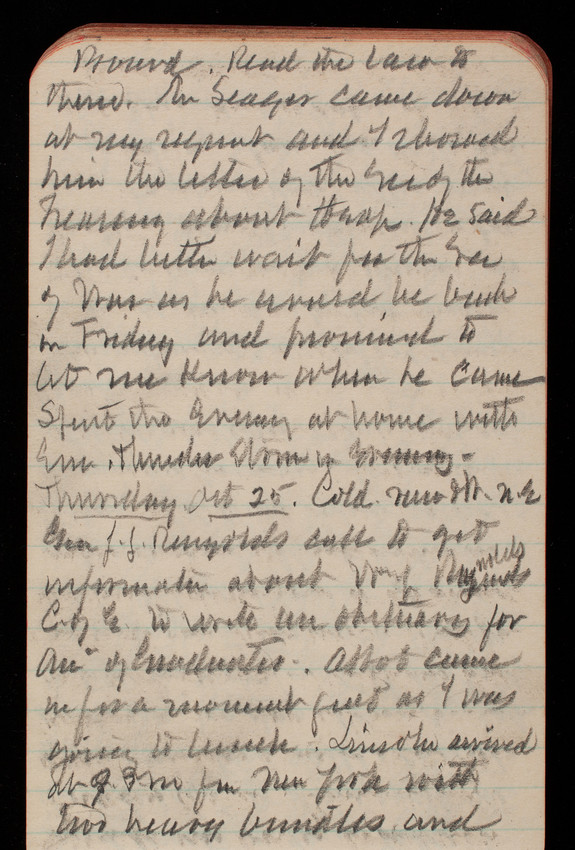 Read the law to
them. Mr Seager came down
at my request and I showed
him the letter of the Sec of the
about He said
I had better wait for the Sec
of War as he would be back
on Friday and promised to
let me know when he came
Spent the Evening at home with
Em. Thunder Storm in Evening -
Thursday Oct 25. Cold. raw N.E
Gen J. J. Reynolds call to get
information about Wm F Reynolds
C of E. to write an obituary for
of Graduates. Abbot came
in for a moment just as I was
going to lunch. Lincoln arrived
at from New York with
two heavy bundles and